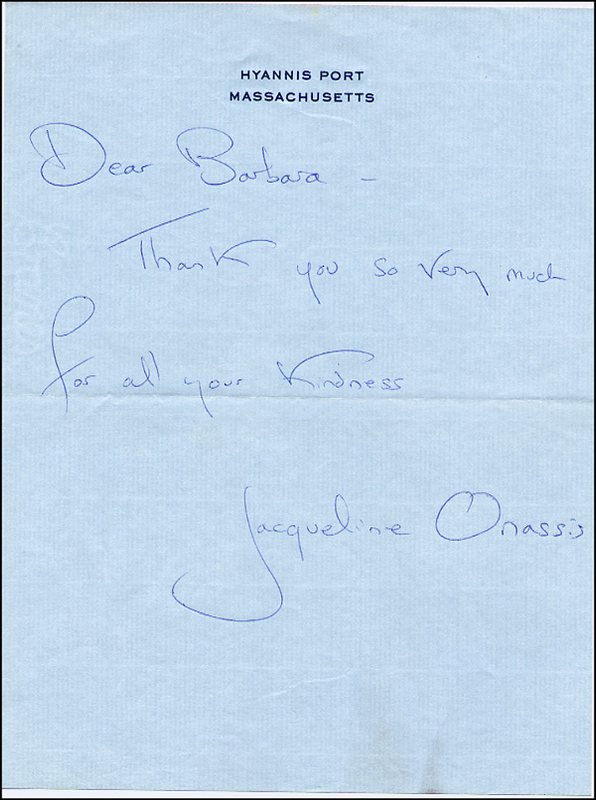 HYANNIS PORT
MASSACHUSETTS
Dear Barbara –
Thank you so very much
for all your kindness
Jacqueline Onassis